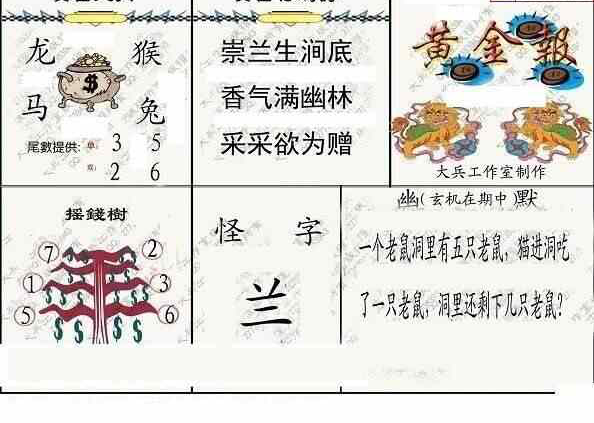 龙 猴
马 兔
尾數提供: 单: 3 5
双: 2 6
崇兰生涧底
香气满幽林
采采欲为赠
黄金報
大兵工作室制作
摇錢樹
⑦ ②
① ③
⑤ ⑥
怪 字
兰
幽(玄机在期中)默
一个老鼠洞里有五只老鼠，猫进洞吃
了一只老鼠，洞里还剩下几只老鼠？